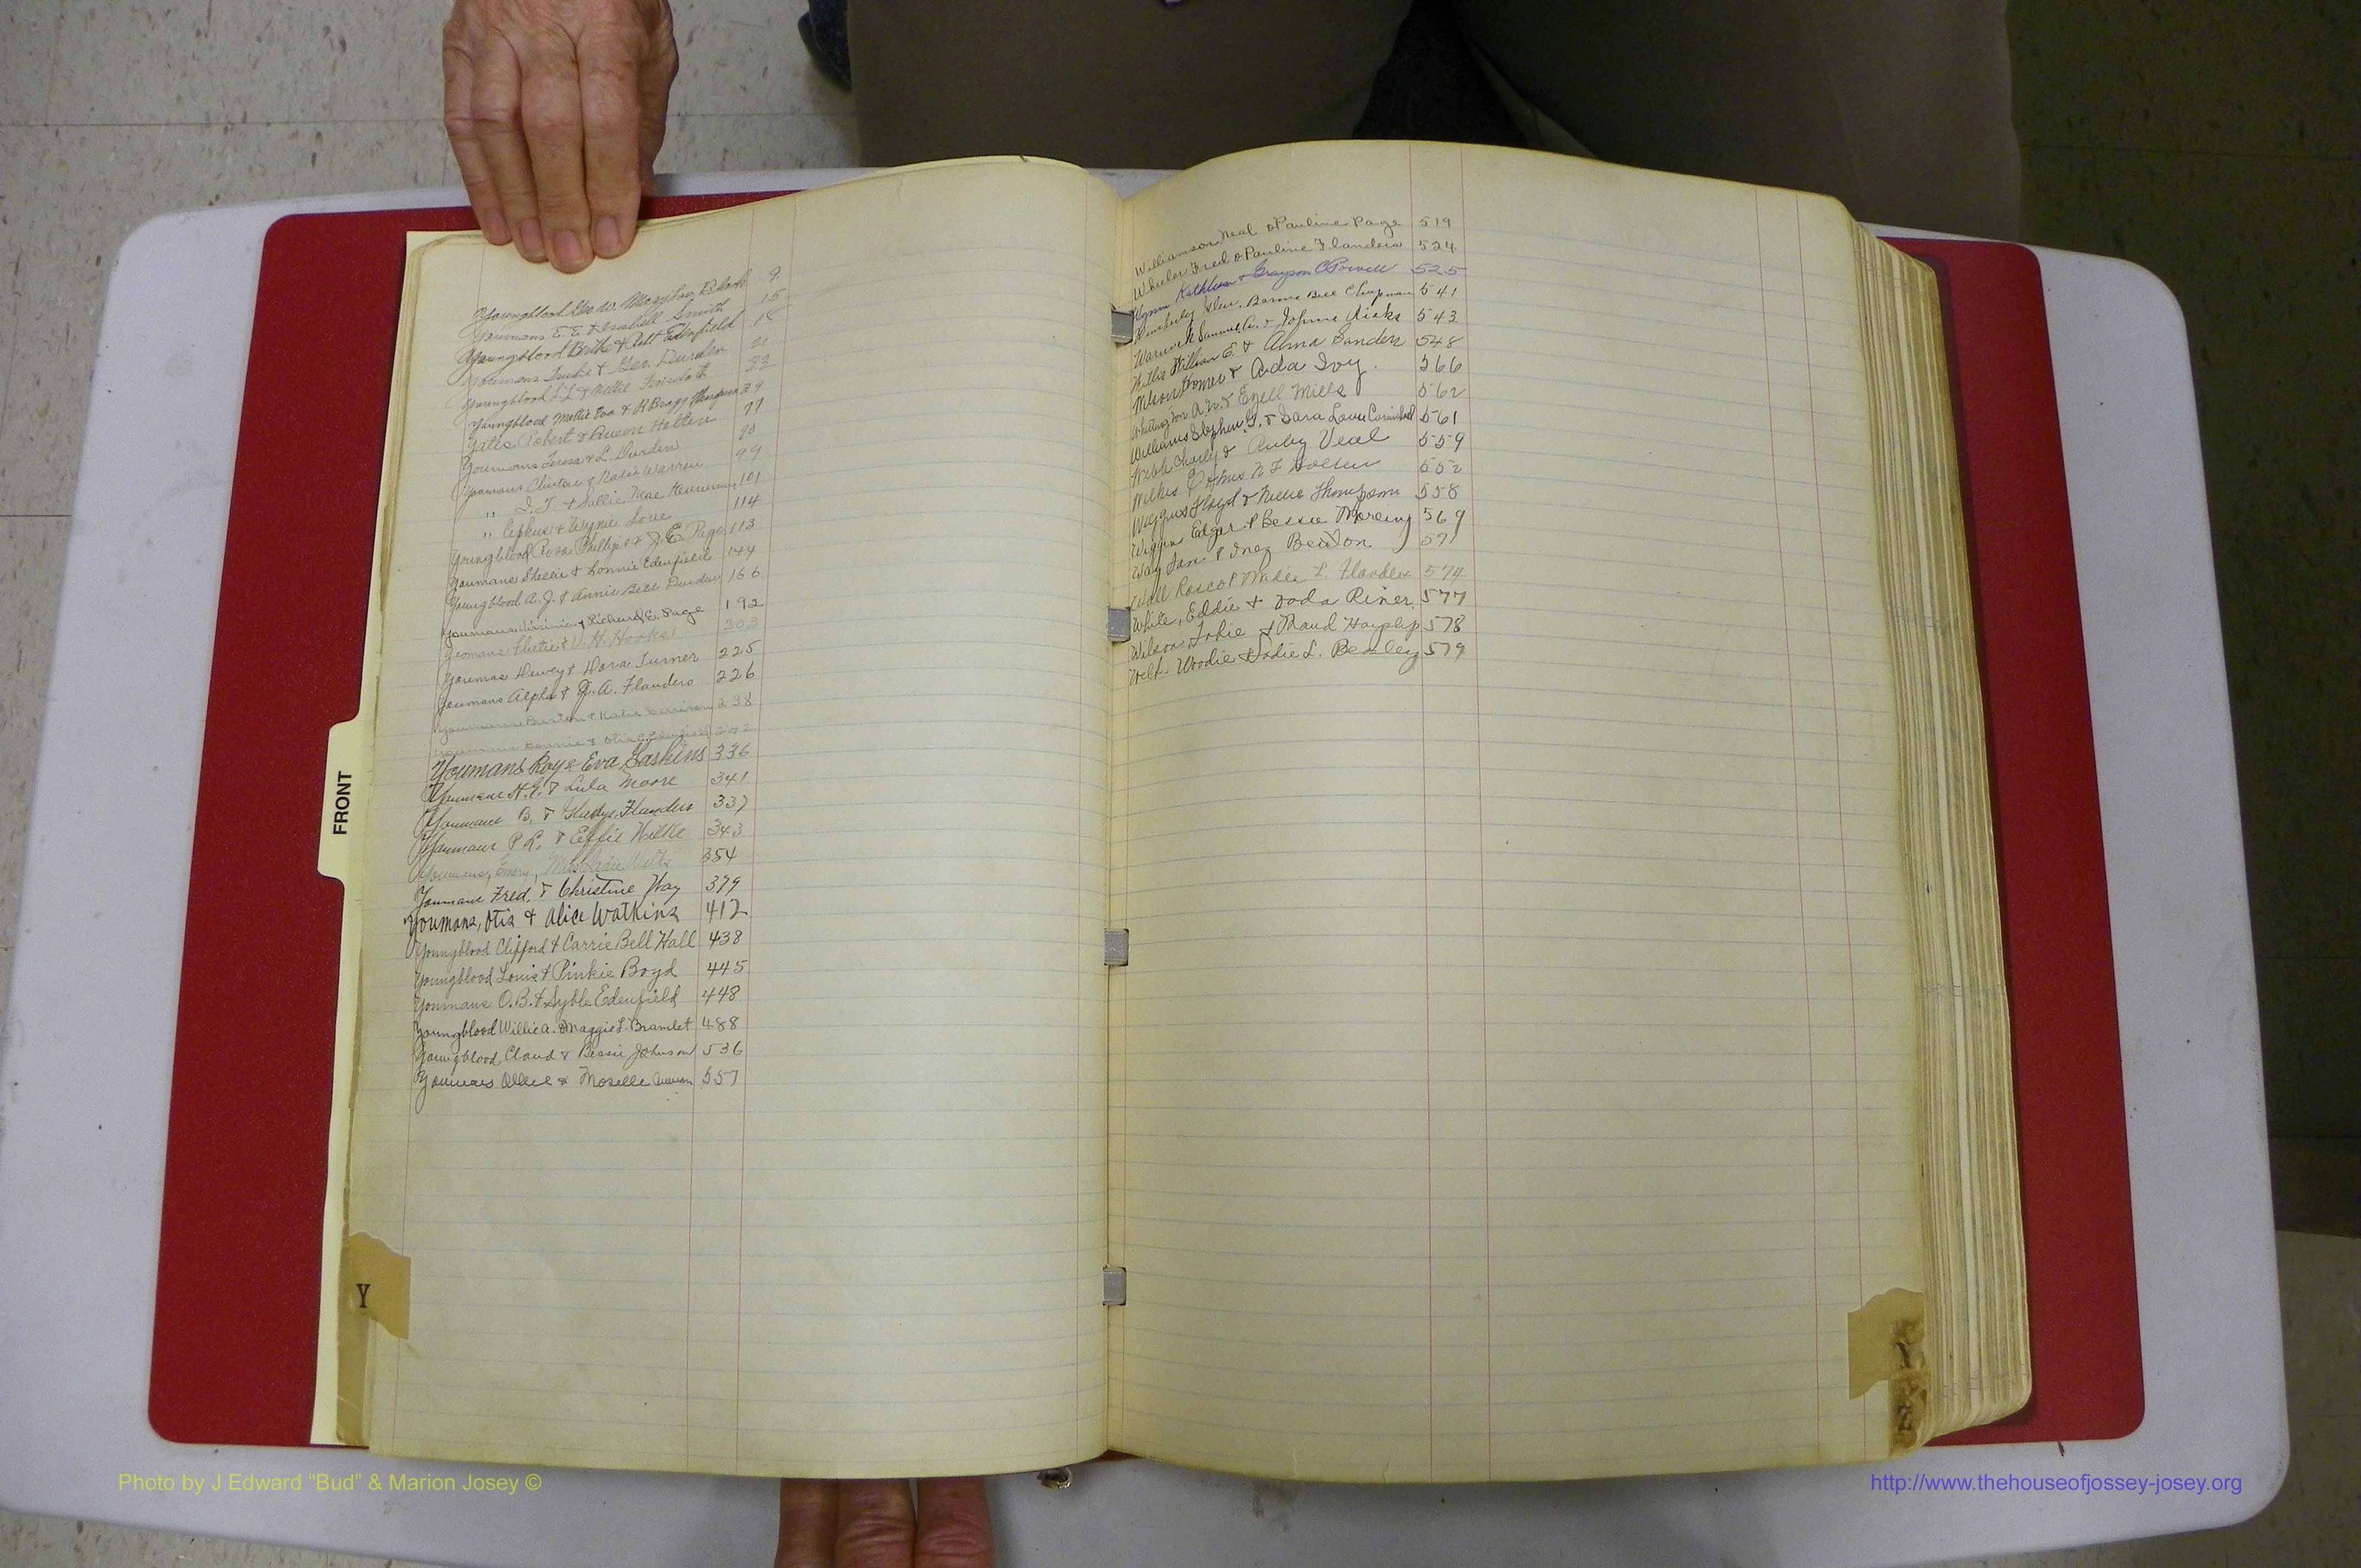 Youngblood Geo W. Mary Lou Black 9
Youmans E. E. & Isabell Smith 15
Youngblood & Edenfield 18
Youmans & Geo. Durden 21
Youngblood L L & Nellie 22
Youngblood Mollie Eva & R Bragg Thompson 39
Yates Robert & Queen Holten 77
Youmans Teresa & L. Durden 90
Youmans Clinton & Katie Warren 99
" I. T. & Sallie Mae 101
" Cephus & Wynie Love 114
Youngblood Rosa Phillips & J. E. Page 113
Youmans & Lonnie Edenfield 144
Youngblood A. J. & Annie Bell Durden 166
Youmans Virginia & Richard E. Page 192
Yeomans & V. H. Hooks 203
Youmas Dewey & Dora Turner 225
Youmans Alpha & A. Flanders 226
Youmans Benton & Katie 238
Youmans Bennie & Otis C. Edenfield 242
Youmans Roy & Eva Gaskins 336
Youmans H. E. & Lula Moore 341
Youmans B. & Gladys Flanders 337
Youmans P. L. & Effie Wilke 343
Youmans, Emory, Miss Sadie 354
Youmans Fred. & Christine Way 379
Youmans, Otis & Alice Watkins 412
Youngblood Clifford & Carrie Bell Hall 438
Youngblood Louis & Pinkie Boyd 445
Youmans O. B. & Syble Edenfield 448
Youngblood Willie A. & Maggie L. Bramlet 488
Youngblood Claud & Bessie Johnson 536
Youmans Ollie & Moselle 557
Williamson Neal & Pauline Page 519
Wheeler Fred & Pauline Flanders 524
Wynn Kathleen & Grayson C Powell 525
Wimberley Glen, Bonnie Bell Chapman 541
Warnock Samuel A. & Johnnie Hicks 543
William E. & Alma Sanders 548
Homer & Ada Ivy. 566
Whittington A. N. & Ezell Mills 562
Williams Stephen G. & Sara Love 561
Webb Charley & Ruby Veal 559
Wilkes N F Holten 552
Wiggins Floyd & Nellie Thompson 558
Wiggins Edgar & Bessie Moreing 569
Way & Inez Benton 571
Wall Roscoe & Millie L. Flanders 574
White, Eddie & Riner 577
Wilson & Maud 578
Woodie & Sadie L. Beasley 579
FRONT
Y
Photo by J Edward “Bud” & Marion Josey ©
http://www.thehouseofjossey-josey.org